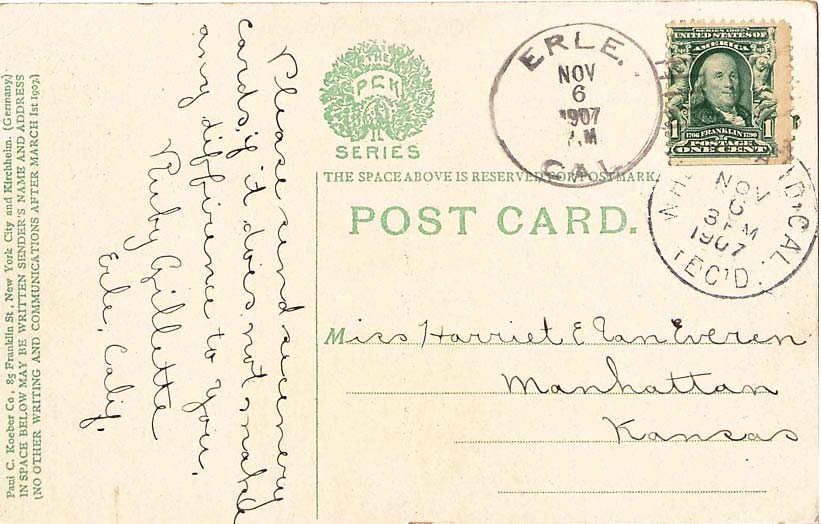 Paul C. Koeber Co., 85 Franklin St., New York City and Kirchheim. (Germany.)
IN SPACE BELOW MAY BE WRITTEN SENDER'S NAME AND ADDRESS
(NO OTHER WRITING AND COMMUNICATIONS AFTER MARCH 1st 1907.)
Please send scenery
cards, if it does not make
any diffirence to you.
Ruby Gillette
Erle, Calif.
THE
PCK
SERIES
ERLE.
NOV
6
1907
CAL
SERIES 1902
UNITED STATES OF
AMERICA
1706 FRANKLIN 1790
1 1
POSTAGE
ONE CENT
THE SPACE ABOVE IS RESERVED FOR POSTMARK.
POST CARD.
NOV
1907
CAL.
REC'D.
Miss Harriet E Van Everen
Manhattan
Kansas